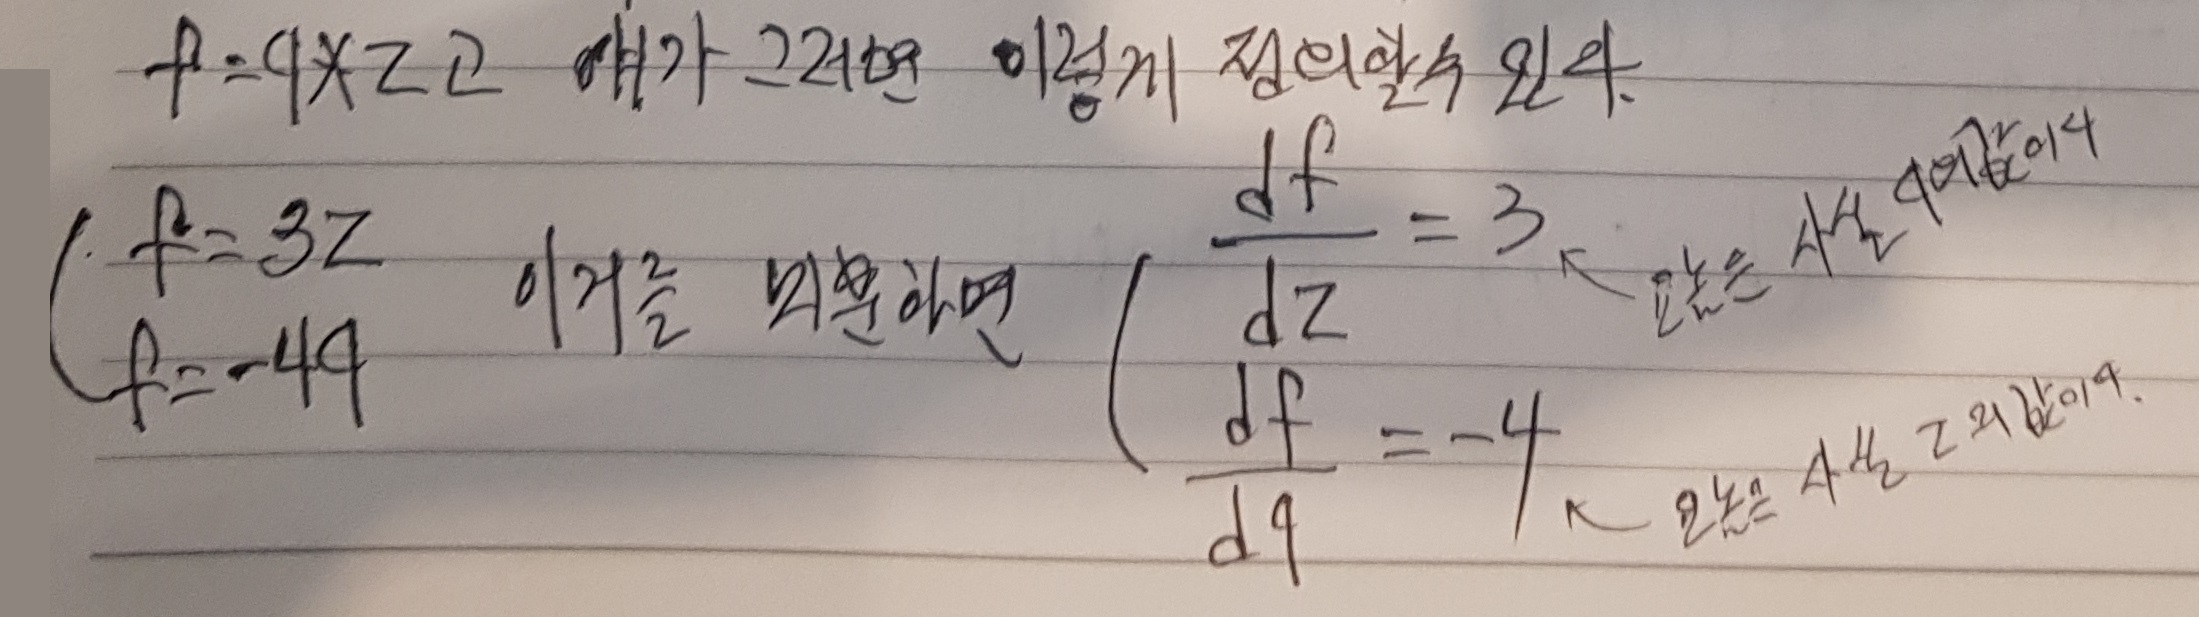 f=q*z 고 얘가 그러면 이렇게 정의할수 있다.
f=3z
f=-4q
이거를 미분하면
df/dz = 3 ↖ 요놈은 사실 q의값이다
df/dq = -4 ↖ 요놈은 사실 z의 값이다.